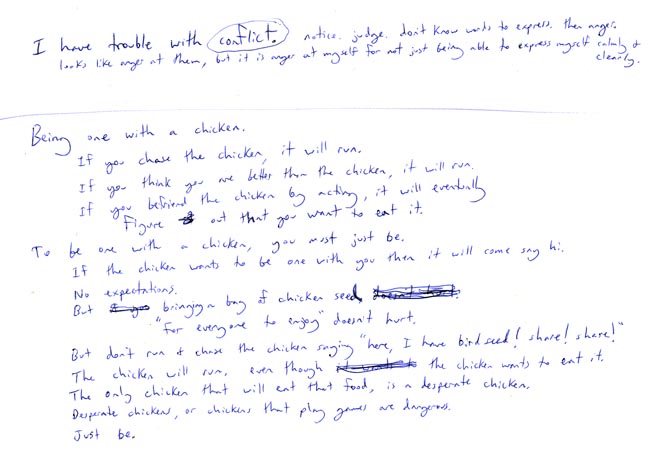 I have trouble with conflict. notice. judge. don't know words to express. then anger.
looks like anger at them, but it is anger at myself for not just being able to express myself calmly & clearly.
Being one with a chicken.
If you chase the chicken, it will run.
If you think you are better than the chicken, it will run.
If you befriend the chicken by acting, it will eventually
Figure out that you want to eat it.
To be one with a chicken, you must just be.
If the chicken wants to be one with you then it will come say hi.
No expectations.
But bringing a bag of chicken seed
"for everyone to enjoy" doesn't hurt.
But don't run & chase the chicken saying "here, I have bird seed! share! share!"
The chicken will run. even though the chicken wants to eat it.
The only chicken that will eat that food, is a desperate chicken.
Desperate chickens, or chickens that play games are dangerous.
Just be.